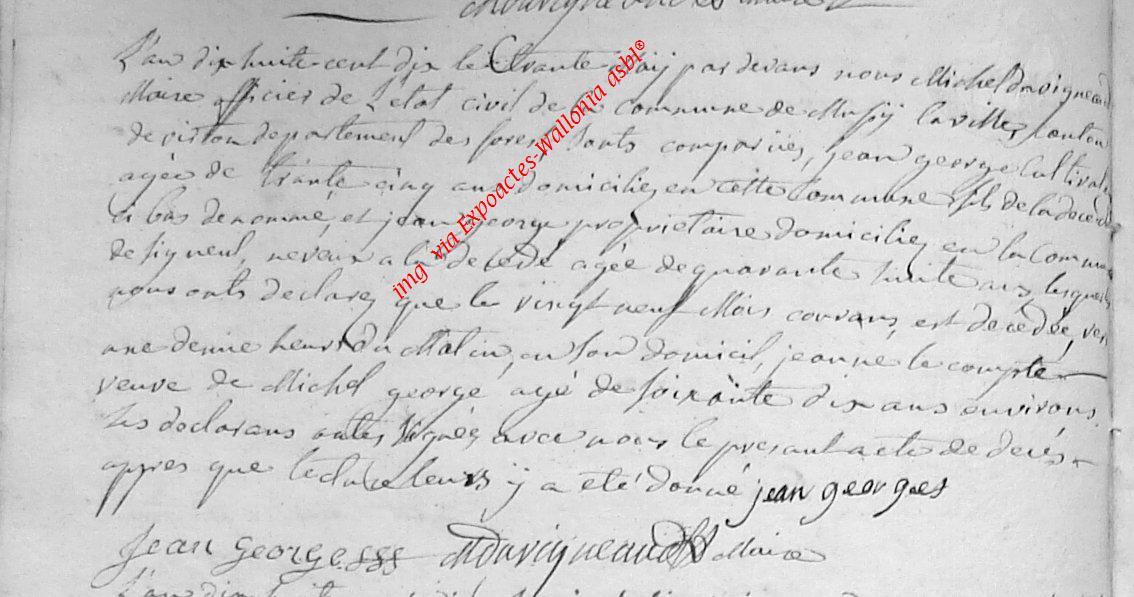 L'an dix huite cent dix le trante Maij par devans nous Michel Duvigneaud
Maire officier de L'etat civil de la commune de Mussÿ la ville, Canton
de virton departement des forets, sonts comparües, jean george Cultivateur
agée de trante cinq ans domiciliez en cette Commune fils de la decedée
ci bas denommé, et jean george proprietaire domiciliez en la Commune
de signeul, neveux a la decedé agée de quarante huite ans, lesquels
nous onts declarez que le vingt neuf Mois courans, est decedée, vers
une demie heure du Matin, en son domicil, jeanne le compte
veuve de Michel george agé de soixante dix ans environs.
Les declarans ontes signéez avec nous le present acte de decés
appres que lecture leurs ÿ a eté donné jean georges
Jean Georgesss MDuvigneaud Maire
img via Expoactes-Wallonia asbl®